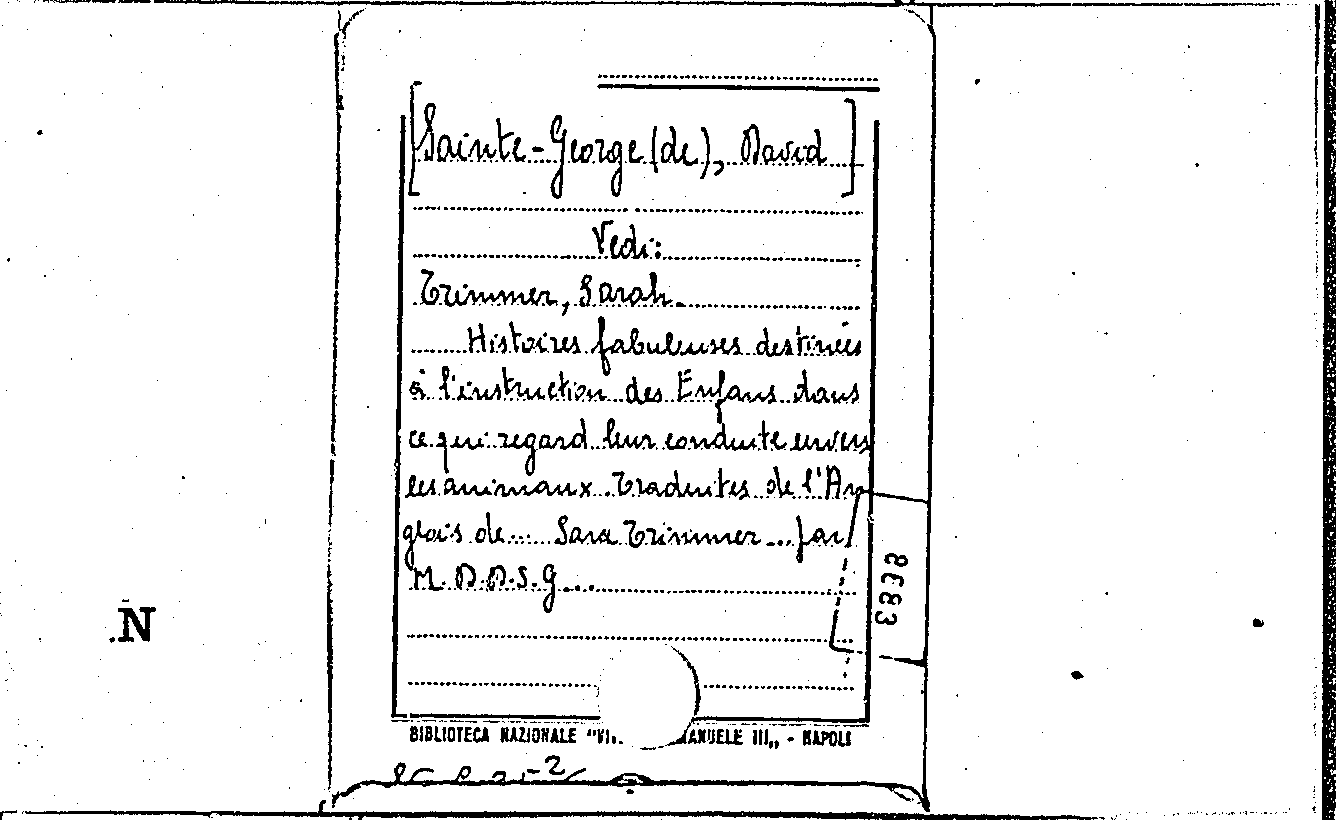 [Sainte-George (de), David]
Vedi:
Trimmer, Sarah.
Histoires fabuleuses destinées
à l'instruction des Enfans dans
ce qui regard leur conduite envers
les animaux. Traduites de l'An
glois de... Sara Trimmer... par
M. D. D. S. G...
8383
N
BIBLIOTECA NAZIONALE "VI. ANUELE III„ - NAPOLI